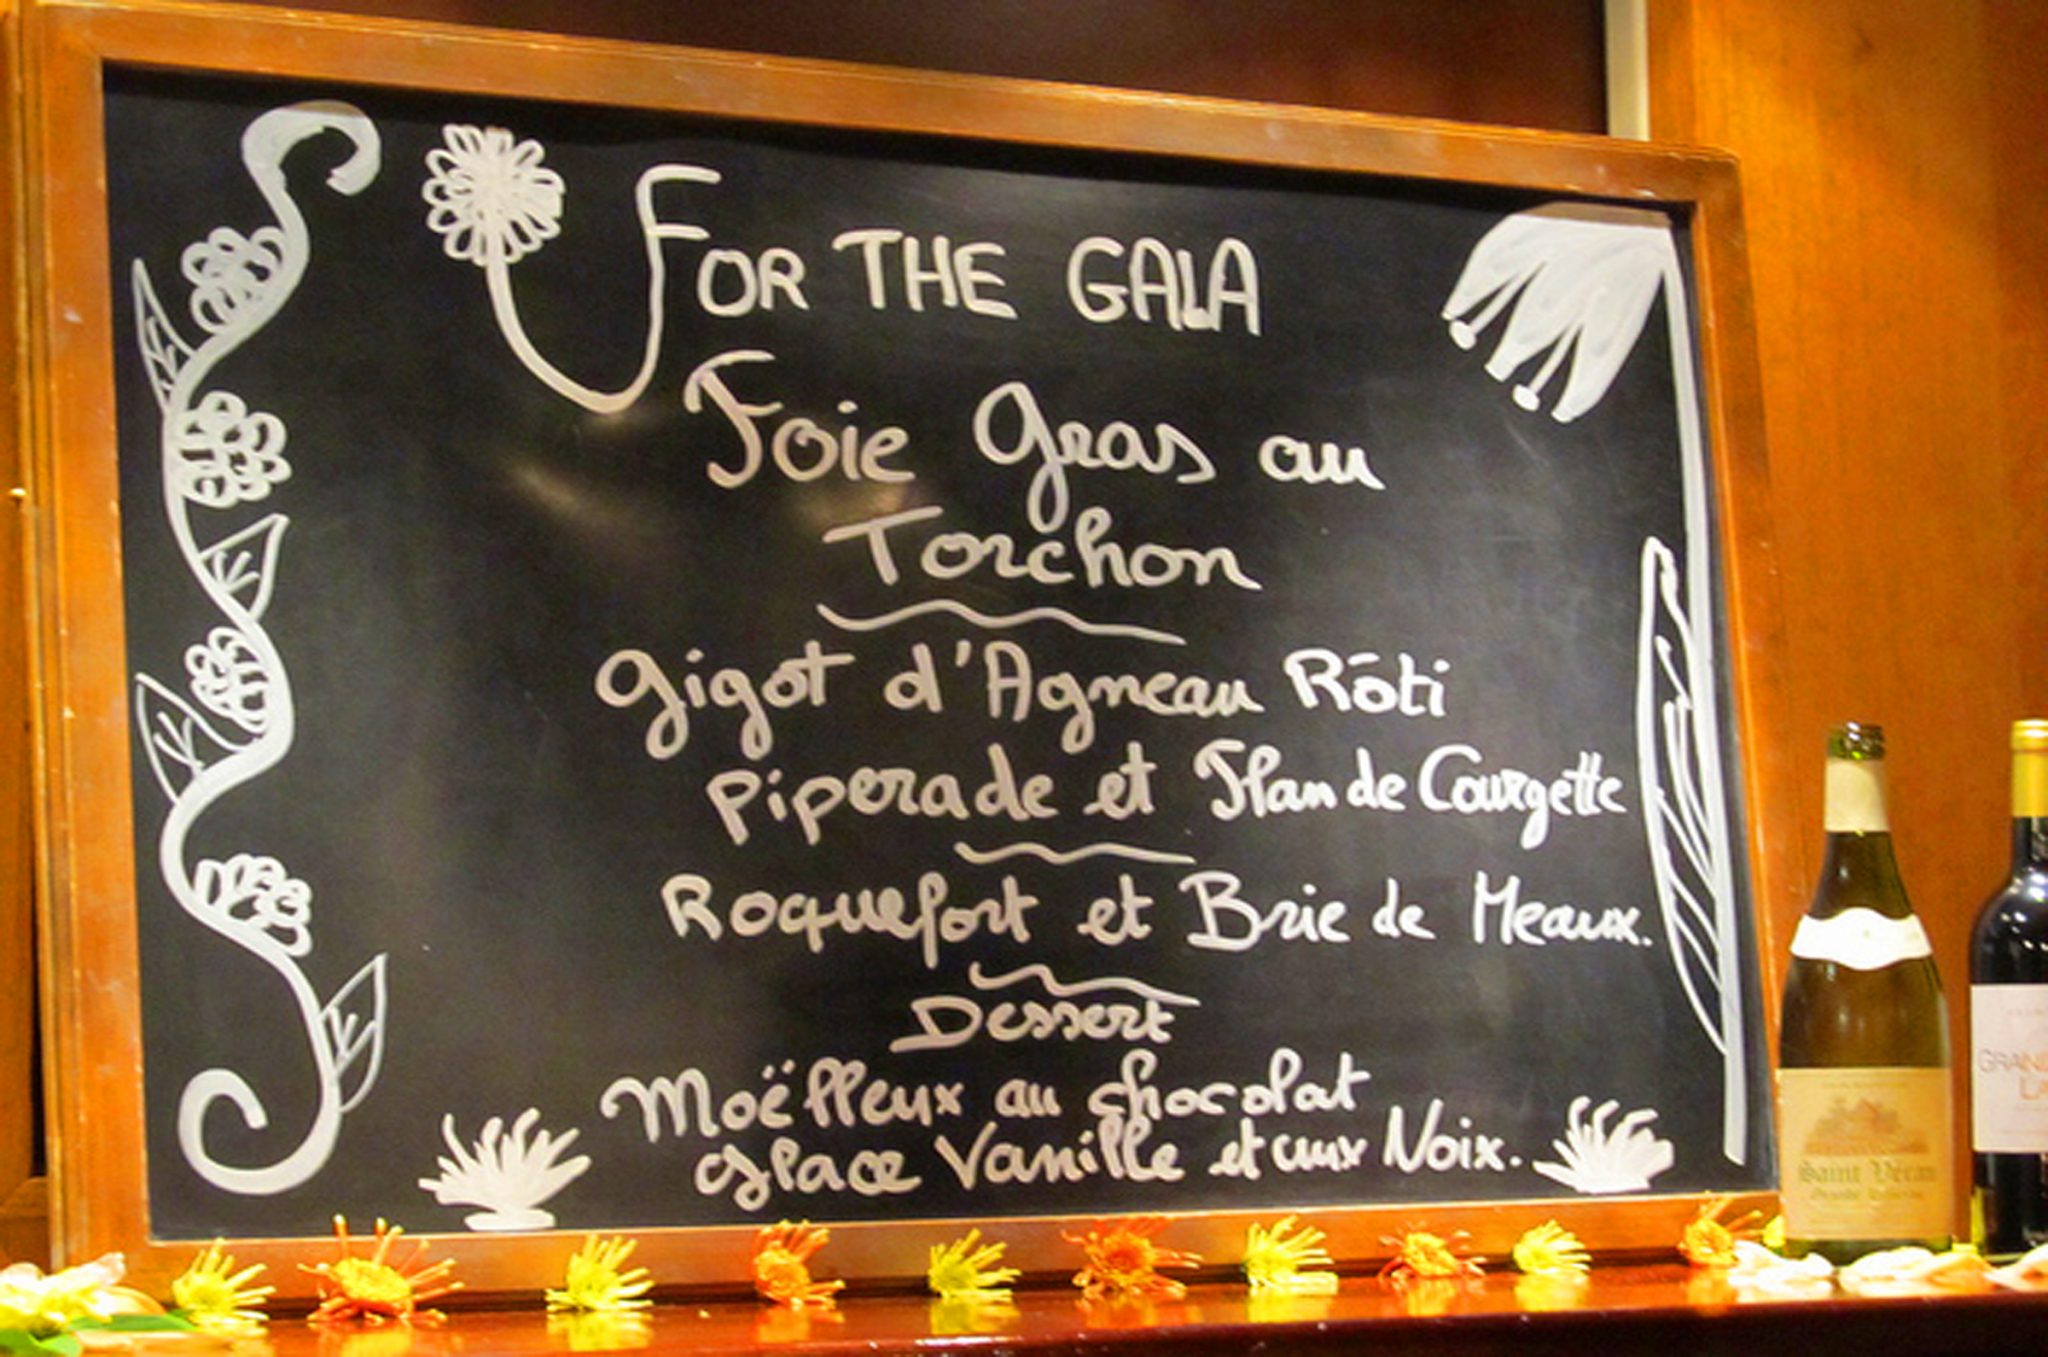 FOR THE GALA
Foie Gras au
Torchon
Gigot d'Agneau Rôti
Piperade et Flan de Courgette
Roquefort et Brie de Meaux.
Dessert
Moëlleux au chocolat
glace Vanille et aux Noix.
Saint Véran
GRAND